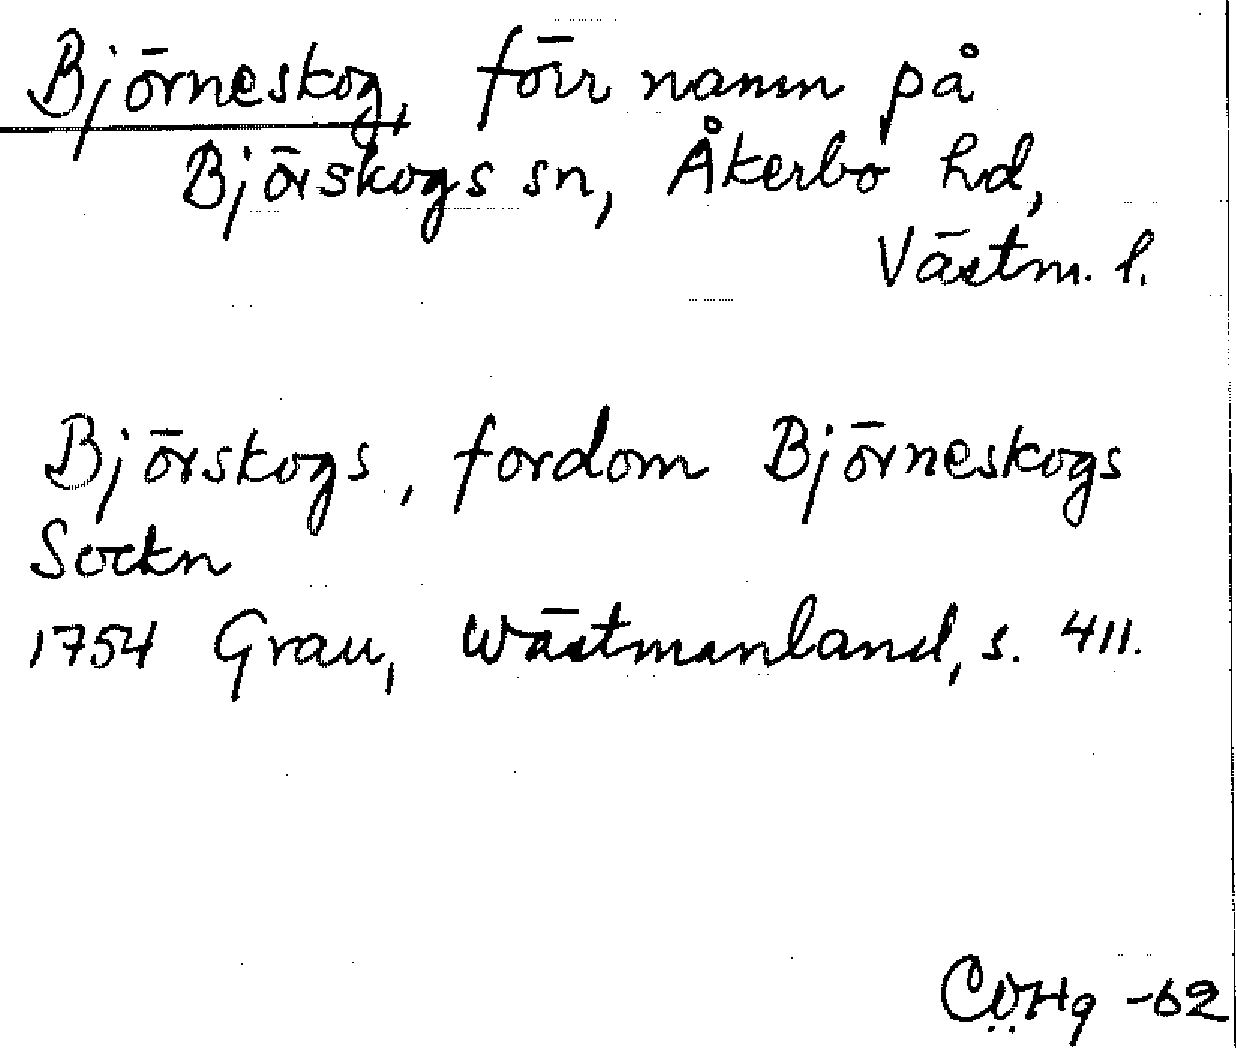 Björneskog, förr namn på
Björskogs sn, Åkerbo hd,
Västm. l.
Björskogs, fordom Björneskogs
Sockn
1754 Grau, Wästmanland, s. 411.
-62